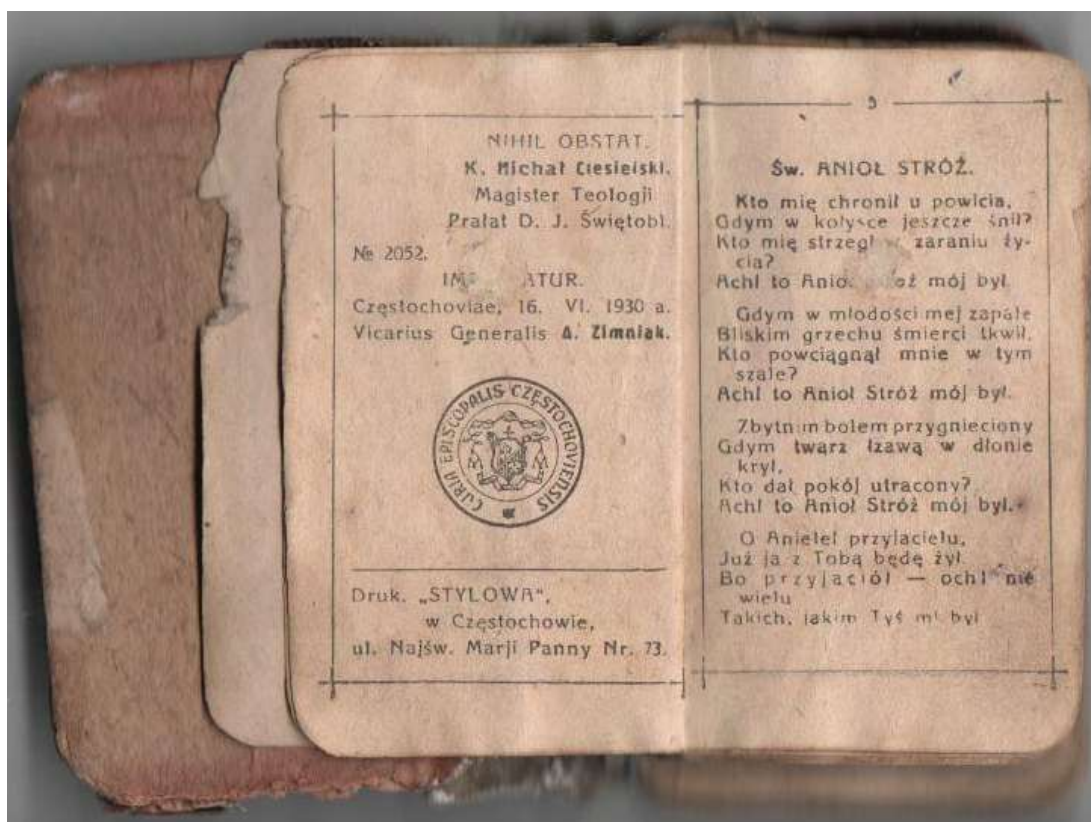 NIHIL OBSTAT.
K. Michał Ciesielski.
Magister Teologji
Prałat D. J. Świętobl.
№ 2052.
IM ATUR.
Częstochoviae, 16. VI. 1930 a.
Vicarius Generalis A. Zimniak.
CURIA EPISCOPALIS CZĘSTOCHOVIENSIS
Druk. „STYLOWA“,
w Częstochowie,
ul. Najśw. Marji Panny Nr. 73.
Św. ANIOŁ STRÓŻ.
Kto mię chronił u powicia,
Gdym w kołysce jeszcze śnił?
Kto mię strzegł w zaraniu ży-
cia?
Ach! to Anioł mój był.
Gdym w młodości mej zapale
Bliskim grzechu śmierci tkwił,
Kto powciągnął mnie w tym
szale?
Ach! to Anioł Stróż mój był.
Zbytnim bolem przygnieciony
Gdym twarz łzawą w dłonie
krył,
Kto dał pokój utracony?
Ach! to Anioł Stróż mój był.
O Aniele! przyjacielu,
Już ja z Tobą będę żył
Bo przyjaciół — och! nie
wielu
Takich, jakim Tyś mi był